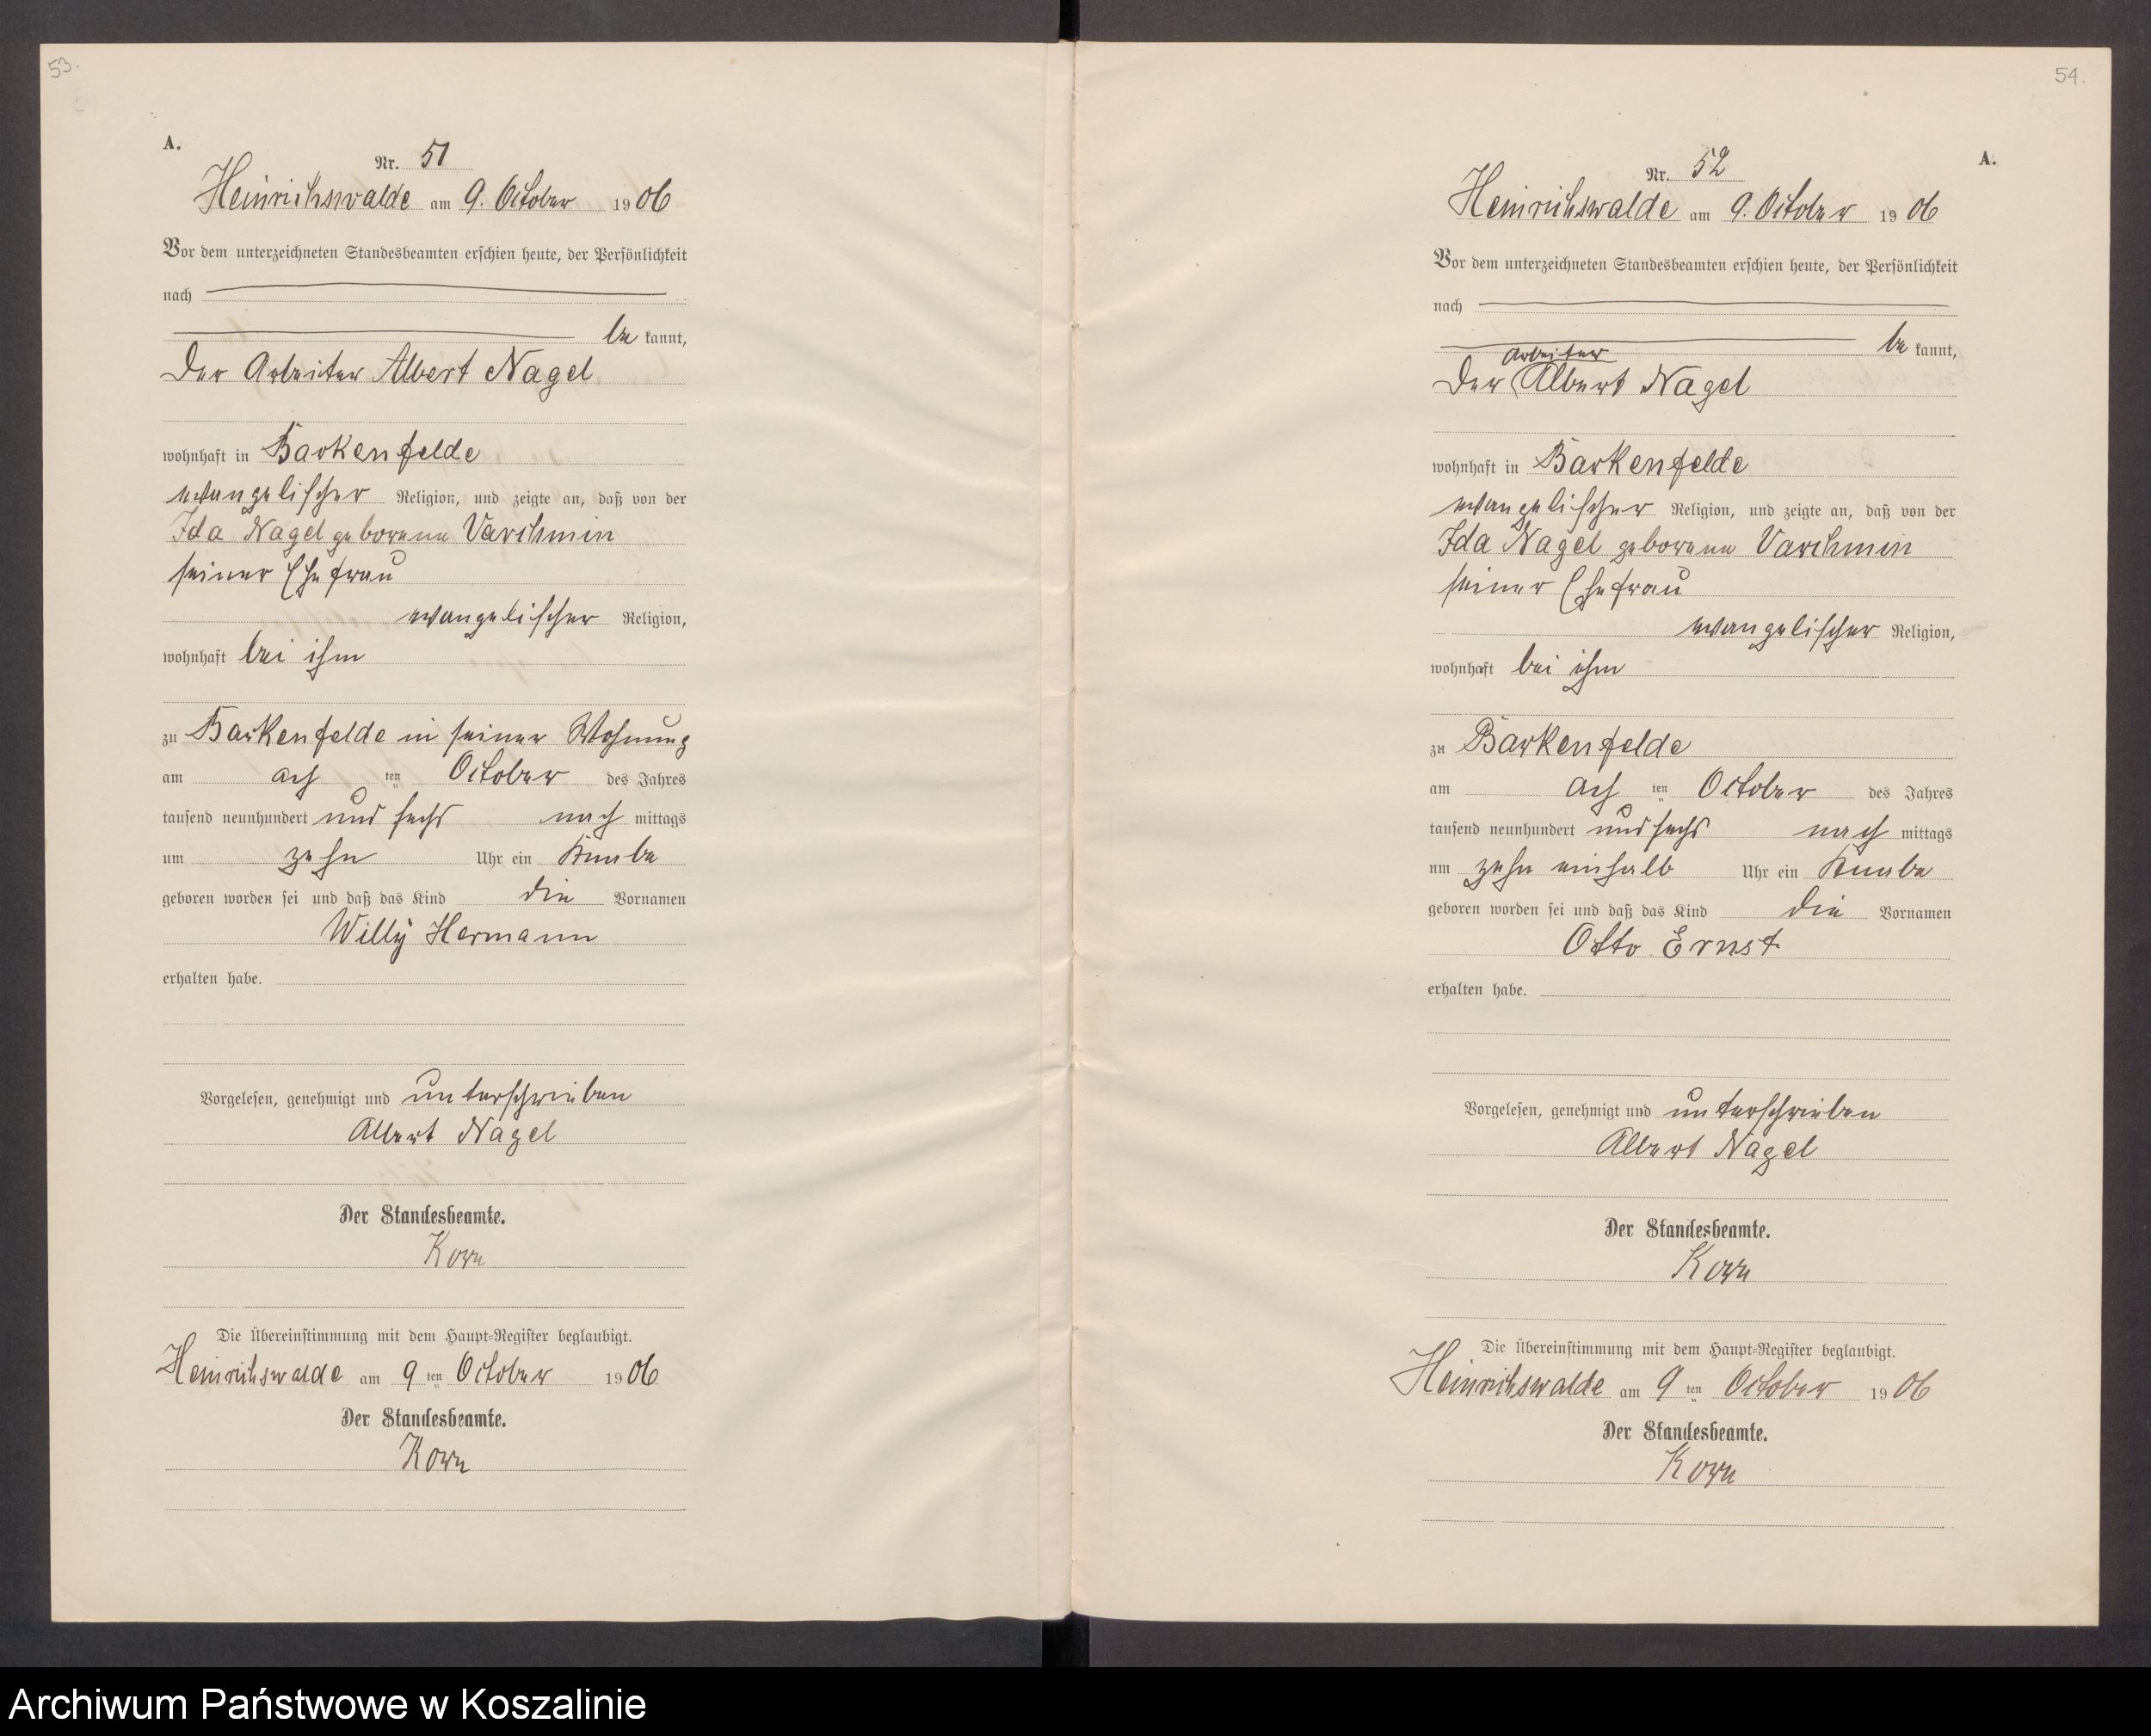 53.
A.
Nr. 51
Heinrichswalde am 9. October 1906
Vor dem unterzeichneten Standesbeamten erschien heute, der Persönlichkeit
nach
be kannt,
der Arbeiter Albert Nagel
wohnhaft in Barkenfelde
evangelischer Religion, und zeigte an, daß von der
Ida Nagel geborene Varchmin
seiner Ehefrau
evangelischer Religion,
wohnhaft bei ihm
zu Barkenfelde in seiner Wohnung
am ach ten October des Jahres
tausend neunhundert und sechs nach mittags
um zehn Uhr ein Knabe
geboren worden sei und daß das Kind die Vornamen
Willy Hermann
erhalten habe.
Vorgelesen, genehmigt und unterschrieben
Albert Nagel
Der Standesbeamte.
Korn
Die Übereinstimmung mit dem Haupt-Register beglaubigt.
Heinrichswalde am 9 ten October 1906
Der Standesbeamte.
Korn
54.
A.
Nr. 52
Heinrichswalde am 9. October 1906
Vor dem unterzeichneten Standesbeamten erschien heute, der Persönlichkeit
nach
be kannt,
Arbeiter
der Albert Nagel
wohnhaft in Barkenfelde
evangelischer Religion, und zeigte an, daß von der
Ida Nagel geborene Varchmin
seiner Ehefrau
evangelischer Religion,
wohnhaft bei ihm
zu Barkenfelde
am ach ten October des Jahres
tausend neunhundert und sechs nach mittags
um zehn einhalb Uhr ein Knabe
geboren worden sei und daß das Kind die Vornamen
Otto Ernst
erhalten habe.
Vorgelesen, genehmigt und unterschrieben
Albert Nagel
Der Standesbeamte.
Korn
Die Übereinstimmung mit dem Haupt-Register beglaubigt.
Heinrichswalde am 9 ten October 1906
Der Standesbeamte.
Korn
Archiwum Państwowe w Koszalinie